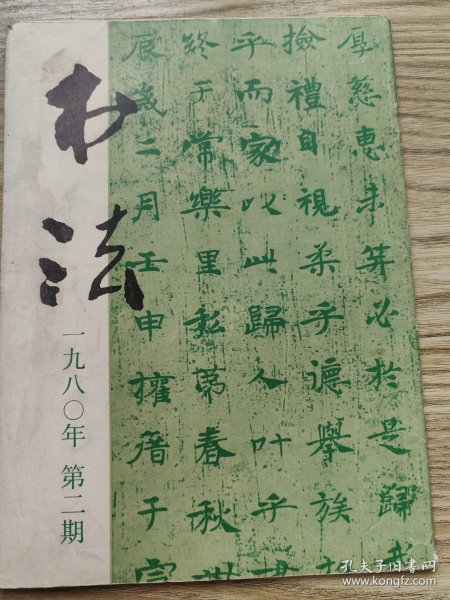 书法
一九八〇年 第二期
厚慈惠未笄必於是歸
撿禮自視柔乎德舉族
乎而家以此歸人叶乎
終于常樂里私第春秋
辰歲二月壬申
孔夫子旧书网
www.kongfz.com